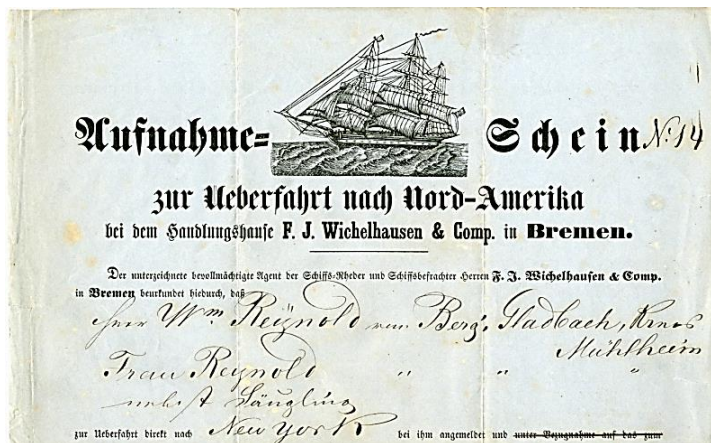 Aufnahme=Schein No: 14
zur Ueberfahrt nach Nord-Amerika
bei dem Handlungshause F. J. Wichelhausen & Comp. in Bremen.
Der unterzeichnete bevollmächtigte Agent der Schiffs-Rheder und Schiffsbefrachter Herren F. J. Wichelhausen & Comp.
in Bremen beurkundet hiedurch, daß
Herr Wm Reÿnold von Berg. Gladbach, Kreis
Mühlheim
Frau Reynold " " "
nebst Säugling
zur Ueberfahrt direkt nach New York bei ihm angemeldet und unter Bezugnahme auf das zum